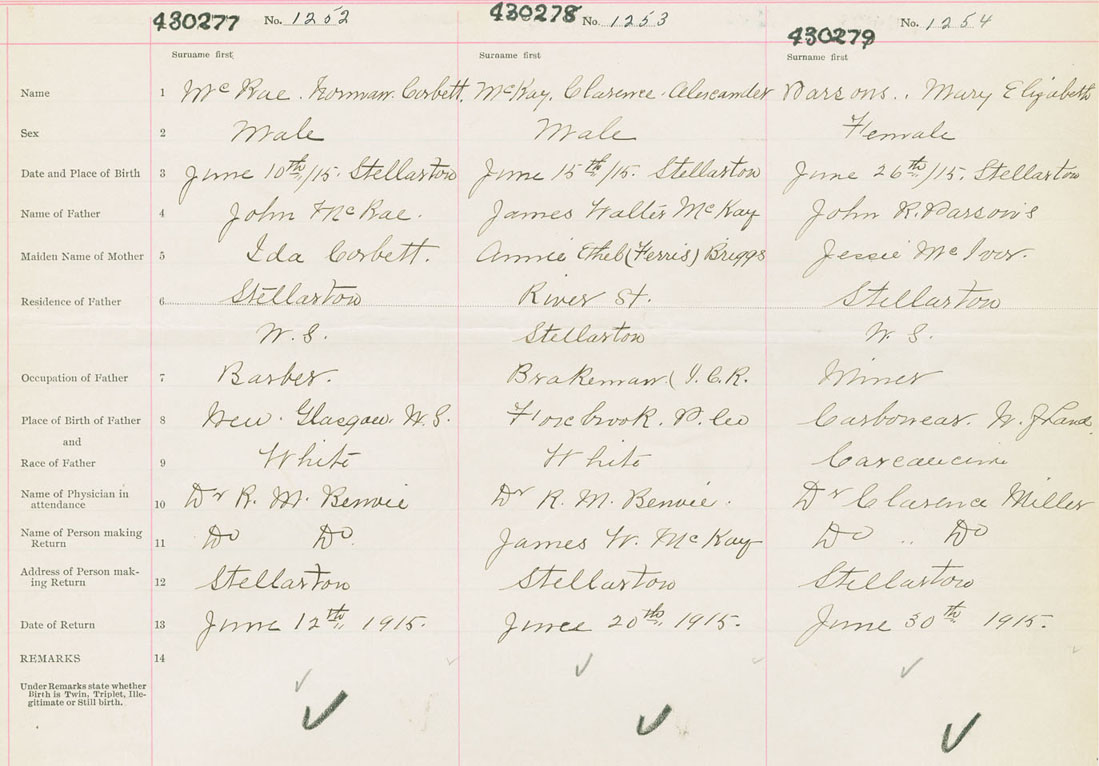 430277 No. 1252 430278 No. 1253 430279 No. 1254
Surname first Surname first Surname first
Name 1 McRae. Norman. Corbett. McKay, Clarence. Alexander Parsons.. Mary Elizabeth
Sex 2 Male Male Female
Date and Place of Birth 3 June 10th/15. Stellarton June 15th/15. Stellarton June 26th/15. Stellarton
Name of Father 4 John McRae. James Walter McKay John R. Parsons
Maiden Name of Mother 5 Ida Corbett. Annie Ethel (Ferris) Briggs Jessie McIvor.
Residence of Father 6 Stellarton River St. Stellarton
N.S. Stellarton N.S.
Occupation of Father 7 Barber. Brakeman (I.C.R. Miner
Place of Birth of Father 8 New. Glasgow. N.S. P. Carbonear. N.
and
Race of Father 9 White White
Name of Physician in
attendance 10 Dr R. M. Benvie Dr R. M. Benvie. Dr Clarence Miller
Name of Person making
Return 11 Do Do. James W. McKay Do .. Do
Address of Person mak-
ing Return 12 Stellarton Stellarton Stellarton
Date of Return 13 June 12th, 1915. June 20th, 1915. June 30th 1915.
REMARKS 14
Under Remarks state whether
Birth is Twin, Triplet, Ille-
gitimate or Still birth.